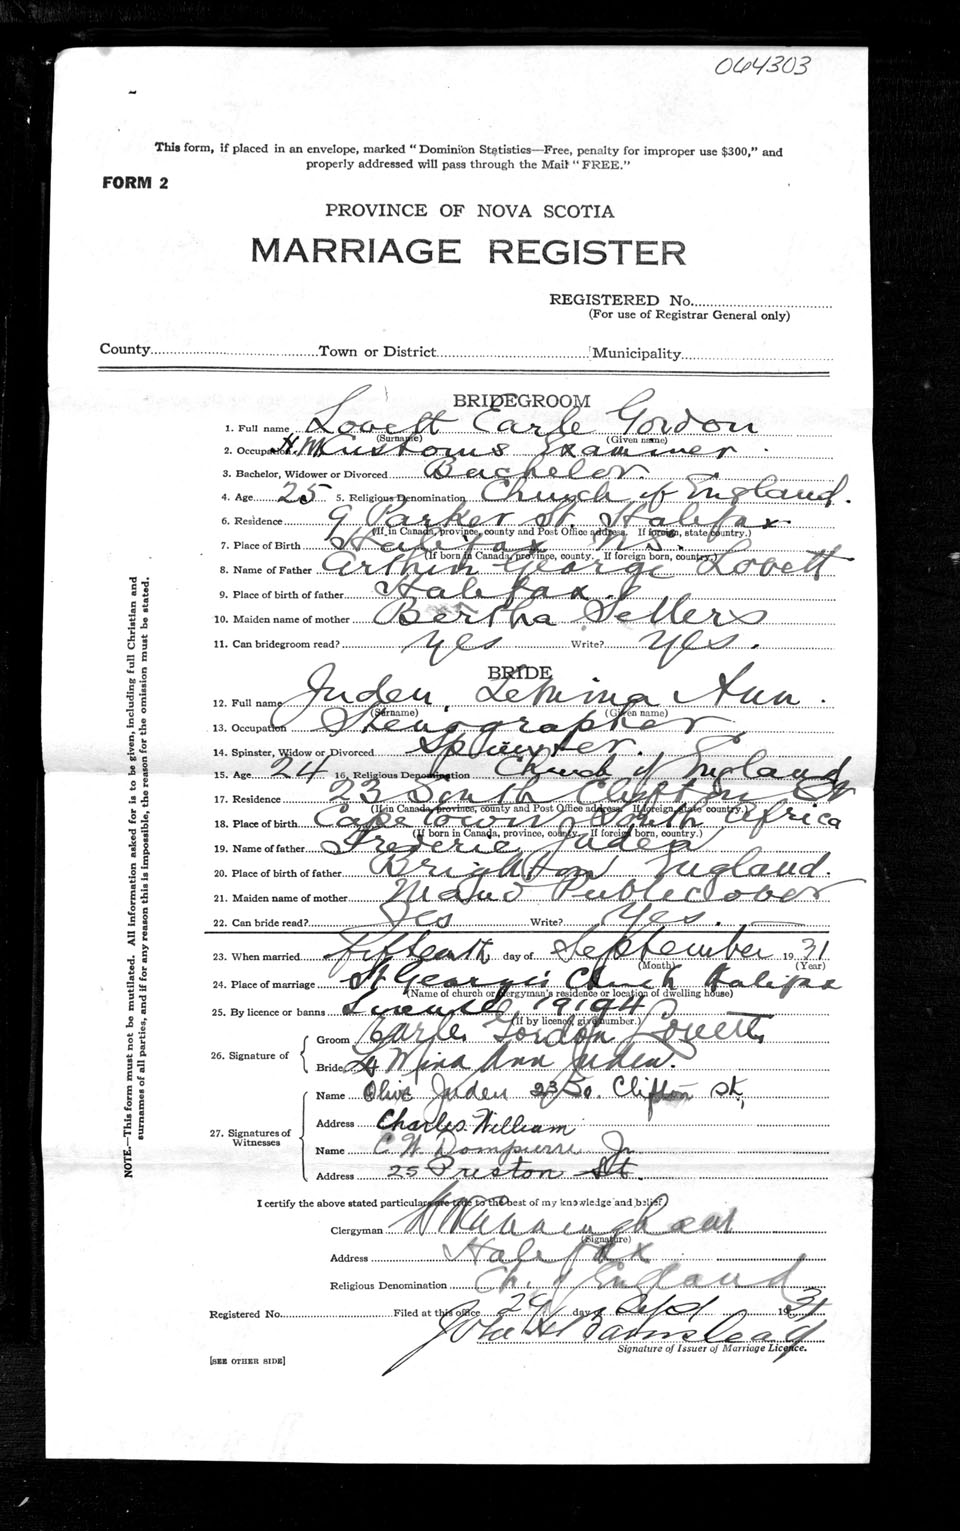 064303
This form, if placed in an envelope, marked "Dominion Statistics—Free, penalty for improper use $300," and
properly addressed will pass through the Mail "FREE."
FORM 2
PROVINCE OF NOVA SCOTIA
MARRIAGE REGISTER
REGISTERED No.
(For use of Registrar General only)
County Town or District Municipality
BRIDEGROOM
1. Full name Lovett Earle Gordon
(Surname) (Given name)
2. Occupation H.M. Customs Examiner
3. Bachelor, Widower or Divorced Bachelor.
4. Age 25 5. Religious Denomination Church of England.
6. Residence 9 Parker St. Halifax
(If in Canada, province, county and Post Office address. If foreign, state country.)
7. Place of Birth Halifax N.S.
(If born in Canada, province, county. If foreign born, country.)
8. Name of Father Arthur George Lovett
9. Place of birth of father Halifax.
10. Maiden name of mother Bertha Sellers
11. Can bridegroom read? yes Write? yes.
BRIDE
12. Full name Juden, Ann
(Surname) (Given name)
13. Occupation Stenographer
14. Spinster, Widow or Divorced Spinster.
15. Age 24 16. Religious Denomination Church of England
17. Residence 23 South Clifton St
(If in Canada, province, county and Post Office address. If foreign, state country.)
18. Place of birth Cape Town South Africa
(If born in Canada, province, county. If foreign born, country.)
19. Name of father Frederic Juden
20. Place of birth of father Brighton England.
21. Maiden name of mother Maud Publicover
22. Can bride read? Yes Write? Yes.
23. When married fifteenth day of September 1931
(Month) (Year)
24. Place of marriage St George's Church Halifax
(Name of church or clergyman's residence or location of dwelling house)
25. By licence or banns License 19194
(If by licence, give number.)
26. Signature of
Groom Earle Gordon Lovett
Bride Mina Ann Juden.
27. Signatures of Witnesses
Name Olive Juden 23 So. Clifton St.,
Address Charles William
Name C W Dompierre Jr
Address 25 Preston St.
I certify the above stated particulars are true to the best of my knowledge and belief)
Clergyman
(Signature)
Address Halifax
Religious Denomination Ch. of England
Registered No. Filed at this office 29 day of Sept 1931
John H Barnstead
Signature of Issuer of Marriage Licence.
[SEE OTHER SIDE]
NOTE.—This form must not be mutilated. All information asked for is to be given, including full Christian and
surnames of all parties, and if for any reason this is impossible, the reason for the omission must be stated.